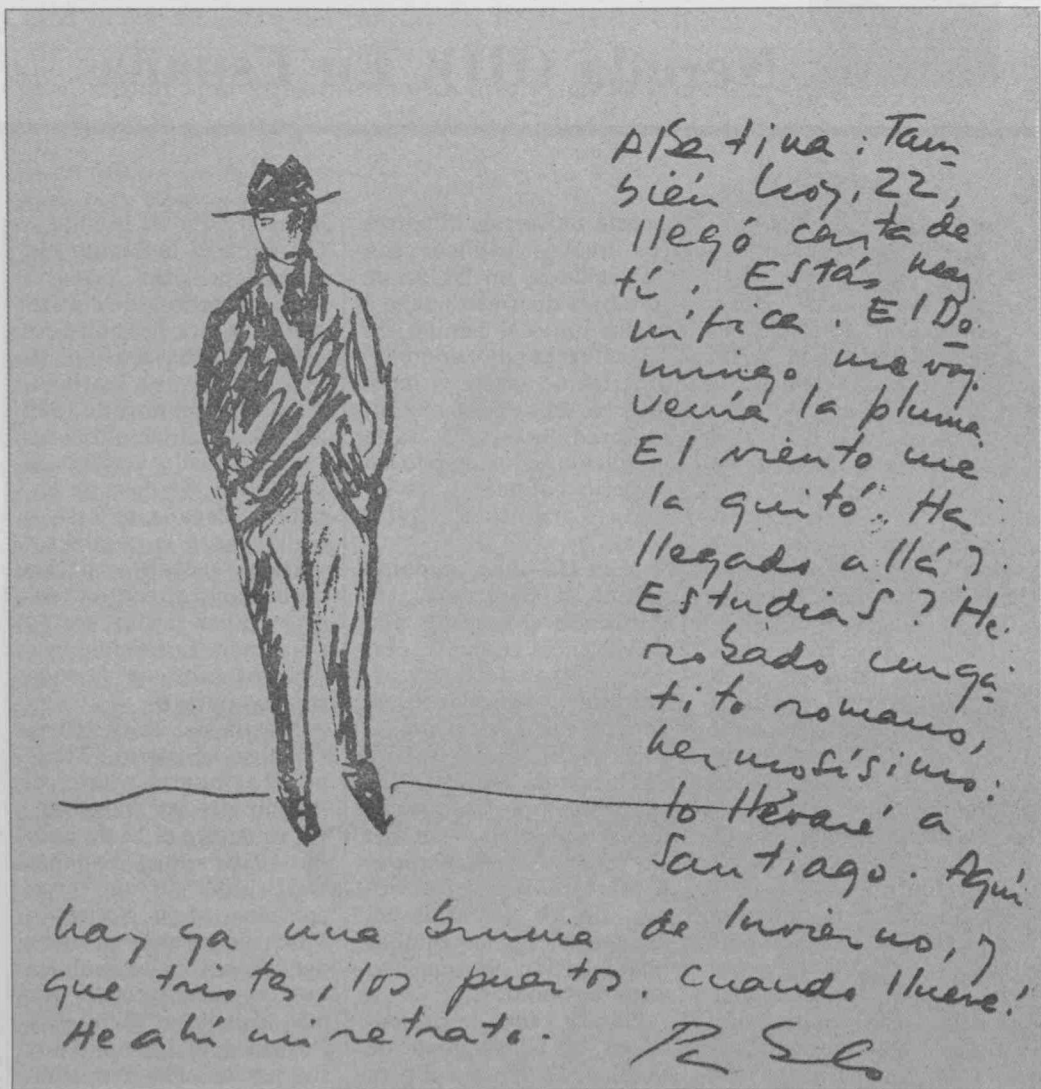 Albertina: Tam
bién hoy, 22,
llegó carta de
tí. Estás mag
nífica. El Do
mingo me voy.
Venía la pluma.
El viento me
la quitó. Ha
llegado allá?
Estudias? He
robado un ga
tito romano,
hermosísimo:
lo llevaré a
Santiago. Aquí
hay ya una bruma de Invierno, y
que tristes, los puertos. cuando llueve!
He ahí mi retrato. Pablo